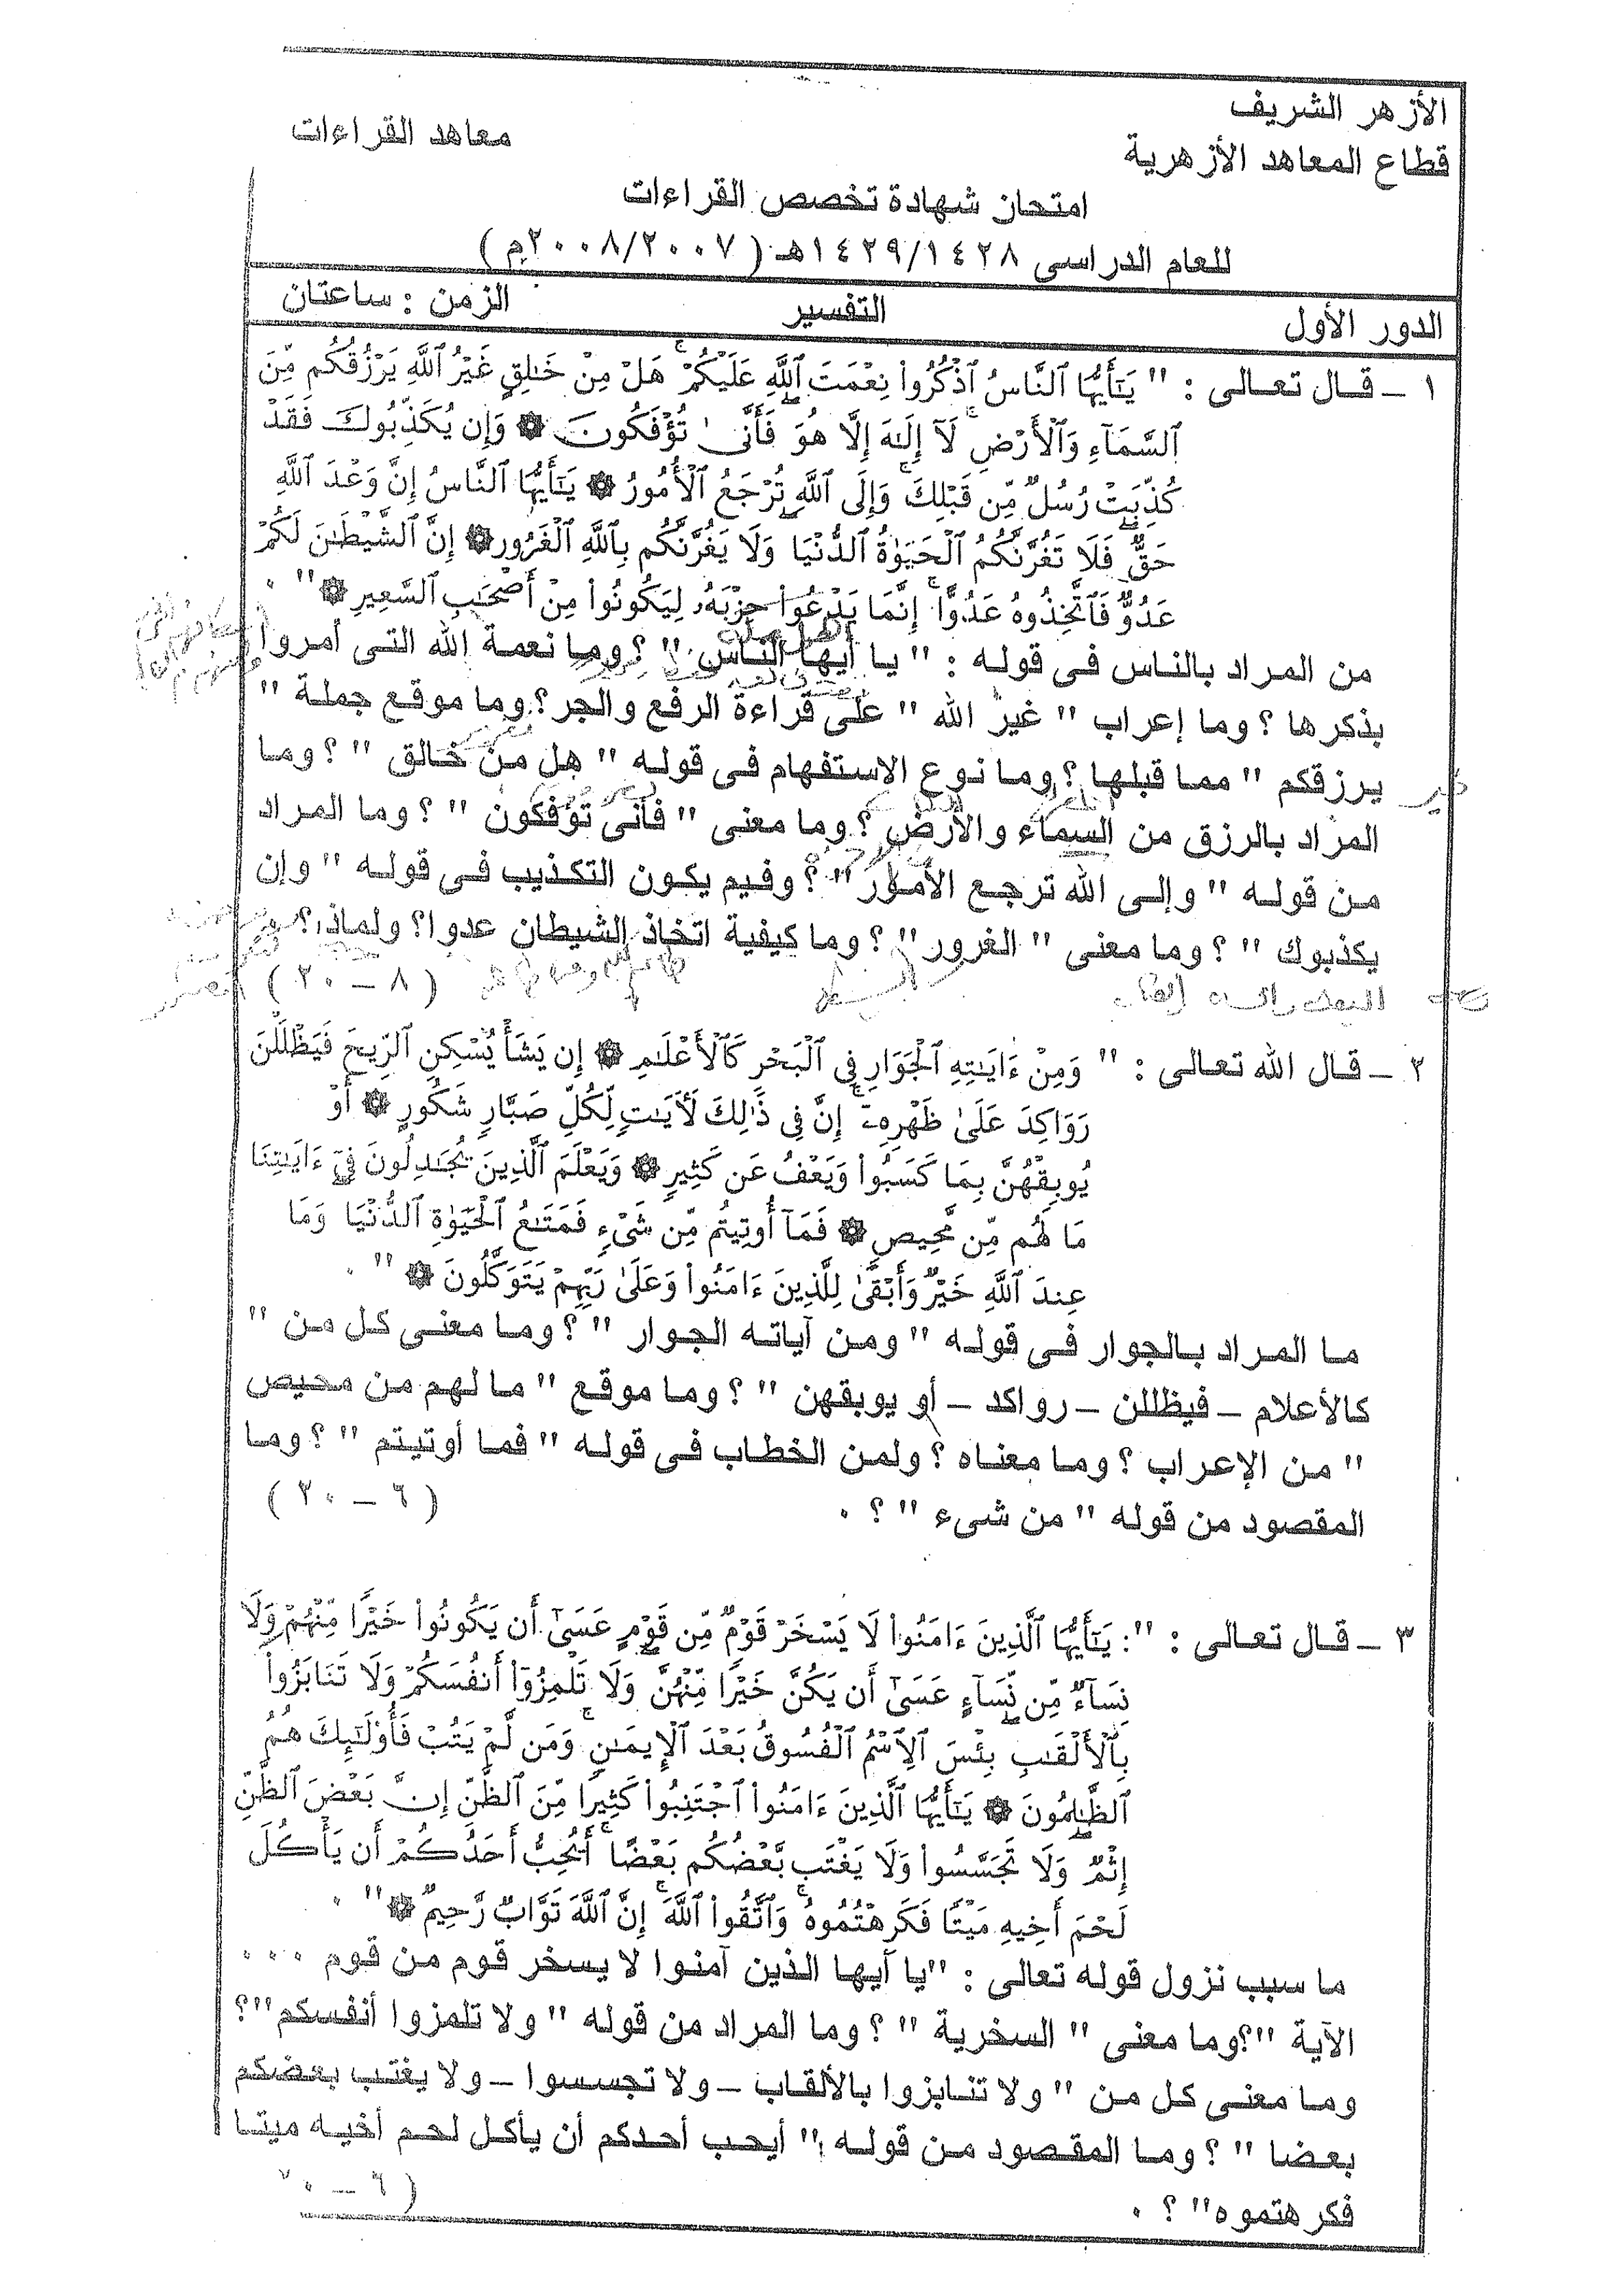 الأزهر الشريف
معاهد القراءات
قطاع المعاهد الأزهرية
امتحان شهادة تخصص القراءات
للعام الدراسى ١٤٢٩/١٤٢٨هـ ( ٢٠٠٨/٢٠٠٧م )
الدور الأول التفسير الزمن : ساعتان
١ – قال تعالى : " يَٰٓأَيُّهَا ٱلنَّاسُ ٱذْكُرُوا۟ نِعْمَتَ ٱللَّهِ عَلَيْكُمْ ۚ هَلْ مِنْ خَٰلِقٍ غَيْرُ ٱللَّهِ يَرْزُقُكُم مِّنَ
ٱلسَّمَآءِ وَٱلْأَرْضِ ۚ لَآ إِلَٰهَ إِلَّا هُوَ ۖ فَأَنَّىٰ تُؤْفَكُونَ ۞ وَإِن يُكَذِّبُوكَ فَقَدْ
كُذِّبَتْ رُسُلٌ مِّن قَبْلِكَ ۚ وَإِلَى ٱللَّهِ تُرْجَعُ ٱلْأُمُورُ ۞ يَٰٓأَيُّهَا ٱلنَّاسُ إِنَّ وَعْدَ ٱللَّهِ
حَقٌّ ۖ فَلَا تَغُرَّنَّكُمُ ٱلْحَيَوٰةُ ٱلدُّنْيَا ۖ وَلَا يَغُرَّنَّكُم بِٱللَّهِ ٱلْغَرُورُ ۞ إِنَّ ٱلشَّيْطَٰنَ لَكُمْ
عَدُوٌّ فَٱتَّخِذُوهُ عَدُوًّا ۚ إِنَّمَا يَدْعُوا۟ حِزْبَهُۥ لِيَكُونُوا۟ مِنْ أَصْحَٰبِ ٱلسَّعِيرِ ۞ " .
من المراد بالناس فى قوله : " يا أيها الناس " ؟ وما نعمة الله التى أمروا
بذكرها ؟ وما إعراب " غير الله " على قراءة الرفع والجر ؟ وما موقع جملة "
يرزقكم " مما قبلها ؟ وما نوع الاستفهام فى قوله " هل من خالق " ؟ وما
المراد بالرزق من السماء والأرض ؟ وما معنى " فأنى تؤفكون " ؟ وما المراد
من قوله " وإلى الله ترجع الأمور " ؟ وفيم يكون التكذيب فى قوله " وإن
يكذبوك " ؟ وما معنى " الغرور " ؟ وما كيفية اتخاذ الشيطان عدوا؟ ولماذا؟
( ٨ – ٢٠ )
٢ – قال الله تعالى : " وَمِنْ ءَايَٰتِهِ ٱلْجَوَارِ فِى ٱلْبَحْرِ كَٱلْأَعْلَٰمِ ۞ إِن يَشَأْ يُسْكِنِ ٱلرِّيحَ فَيَظْلَلْنَ
رَوَاكِدَ عَلَىٰ ظَهْرِهِۦٓ ۚ إِنَّ فِى ذَٰلِكَ لَءَايَٰتٍ لِّكُلِّ صَبَّارٍ شَكُورٍ ۞ أَوْ
يُوبِقْهُنَّ بِمَا كَسَبُوا۟ وَيَعْفُ عَن كَثِيرٍ ۞ وَيَعْلَمَ ٱلَّذِينَ يُجَٰدِلُونَ فِىٓ ءَايَٰتِنَا
مَا لَهُم مِّن مَّحِيصٍ ۞ فَمَآ أُوتِيتُم مِّن شَىْءٍ فَمَتَٰعُ ٱلْحَيَوٰةِ ٱلدُّنْيَا ۖ وَمَا
عِندَ ٱللَّهِ خَيْرٌ وَأَبْقَىٰ لِلَّذِينَ ءَامَنُوا۟ وَعَلَىٰ رَبِّهِمْ يَتَوَكَّلُونَ ۞ " .
ما المراد بالجوار فى قوله " ومن آياته الجوار " ؟ وما معنى كل من "
كالأعلام – فيظللن – رواكد – أو يوبقهن " ؟ وما موقع " ما لهم من محيص
" من الإعراب ؟ وما معناه ؟ ولمن الخطاب فى قوله " فما أوتيتم " ؟ وما
المقصود من قوله " من شىء " ؟ .
( ٦ – ٢٠ )
٣ – قال تعالى : " : يَٰٓأَيُّهَا ٱلَّذِينَ ءَامَنُوا۟ لَا يَسْخَرْ قَوْمٌ مِّن قَوْمٍ عَسَىٰٓ أَن يَكُونُوا۟ خَيْرًا مِّنْهُمْ وَلَا
نِسَآءٌ مِّن نِّسَآءٍ عَسَىٰٓ أَن يَكُنَّ خَيْرًا مِّنْهُنَّ ۖ وَلَا تَلْمِزُوٓا۟ أَنفُسَكُمْ وَلَا تَنَابَزُوا۟
بِٱلْأَلْقَٰبِ ۖ بِئْسَ ٱلِٱسْمُ ٱلْفُسُوقُ بَعْدَ ٱلْإِيمَٰنِ ۚ وَمَن لَّمْ يَتُبْ فَأُو۟لَٰٓئِكَ هُمُ
ٱلظَّٰلِمُونَ ۞ يَٰٓأَيُّهَا ٱلَّذِينَ ءَامَنُوا۟ ٱجْتَنِبُوا۟ كَثِيرًا مِّنَ ٱلظَّنِّ إِنَّ بَعْضَ ٱلظَّنِّ
إِثْمٌ ۖ وَلَا تَجَسَّسُوا۟ وَلَا يَغْتَب بَّعْضُكُم بَعْضًا ۚ أَيُحِبُّ أَحَدُكُمْ أَن يَأْكُلَ
لَحْمَ أَخِيهِ مَيْتًا فَكَرِهْتُمُوهُ ۚ وَٱتَّقُوا۟ ٱللَّهَ ۚ إِنَّ ٱللَّهَ تَوَّابٌ رَّحِيمٌ ۞ " .
ما سبب نزول قوله تعالى : "يا أيها الذين آمنوا لا يسخر قوم من قوم ...
الآية "؟ وما معنى " السخرية " ؟ وما المراد من قوله " ولا تلمزوا أنفسكم"؟
وما معنى كل من " ولا تنابزوا بالألقاب – ولا تجسسوا – ولا يغتب بعضكم
بعضا " ؟ وما المقصود من قوله " أيحب أحدكم أن يأكل لحم أخيه ميتا
فكرهتموه" ؟ .
( ٦ – ٢٠